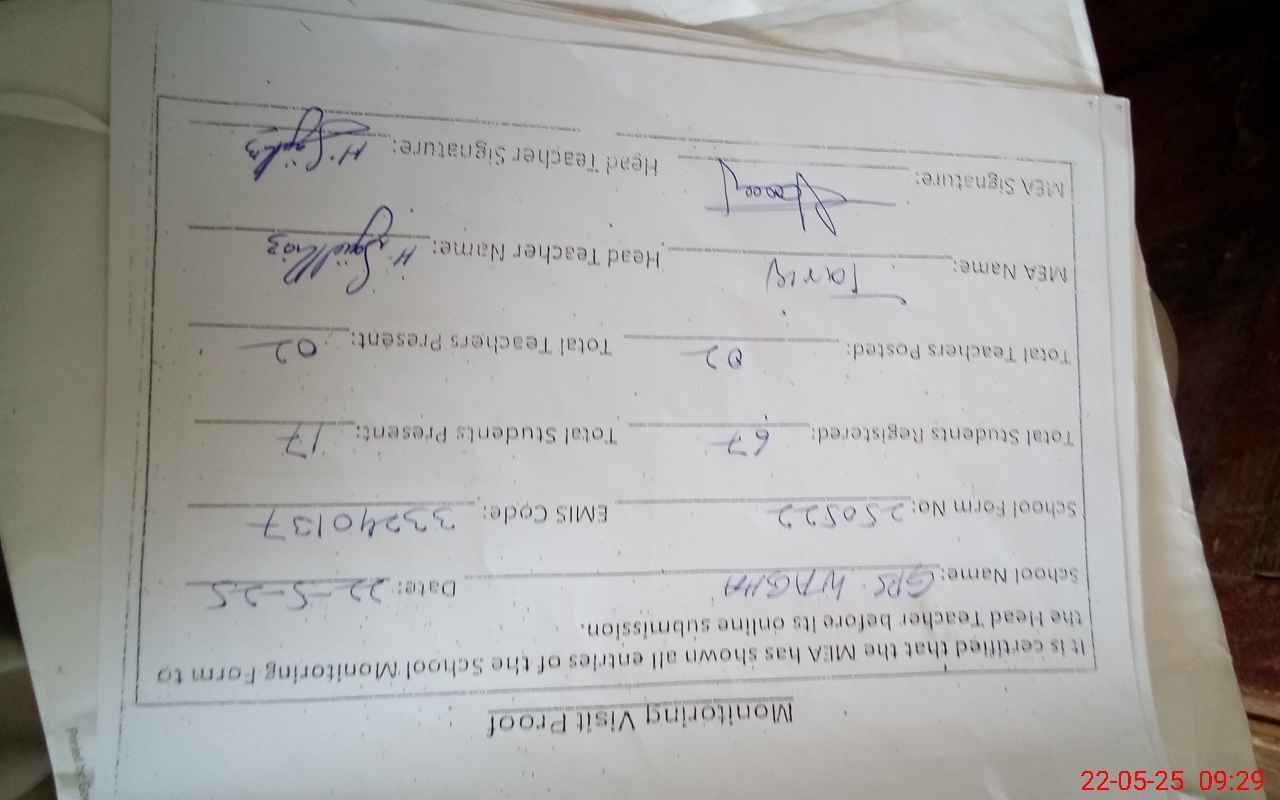 Monitoring Visit Proof
It is certified that the MEA has shown all entries of the School Monitoring Form to
the Head Teacher before its online submission.
School Name: GPS WAGHA Date: 22-5-25
School Form No: 250522 EMIS Code: 33240137
Total Students Registered: 67 Total Students Present: 17
Total Teachers Posted: 02 Total Teachers Present: 02
MEA Name: Tariq Head Teacher Name: H.
MEA Signature: Head Teacher Signature: H.
22-05-25 09:29